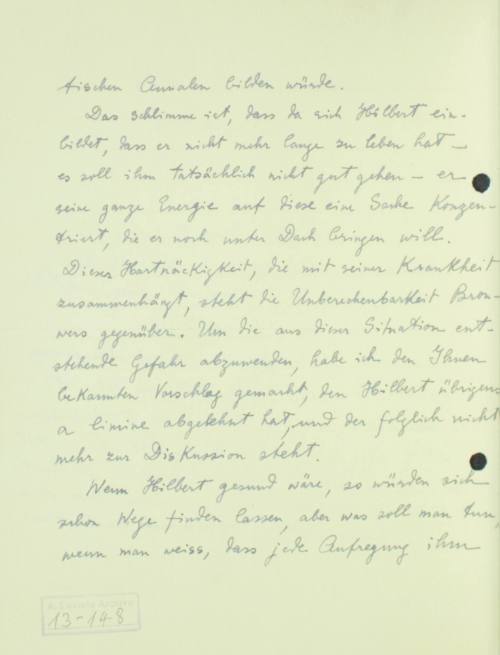 tischen Annalen bilden würde.
Das schlimme ist, dass da sich Hilbert ein-
bildet, dass er nicht mehr lange zu leben hat –
es soll ihm tatsächlich nicht gut gehen – er
seine ganze Energie auf diese eine Sache konzen-
triert, die er noch unter Dach bringen will.
Dieser Hartnäckigkeit, die mit seiner Krankheit
zusammenhängt, steht die Unberechenbarkeit Brou-
wers gegenüber. Um die aus dieser Situation ent-
stehende Gefahr abzuwenden, habe ich den Ihnen
bekannten Vorschlag gemacht, den Hilbert übrigens
a limine abgelehnt hat, und der folglich nicht
mehr zur Diskussion steht.
Wenn Hilbert gesund wäre, so würden sich
schon Wege finden lassen, aber was soll man tun,
wenn man weiss, dass jede Aufregung ihm
13-148